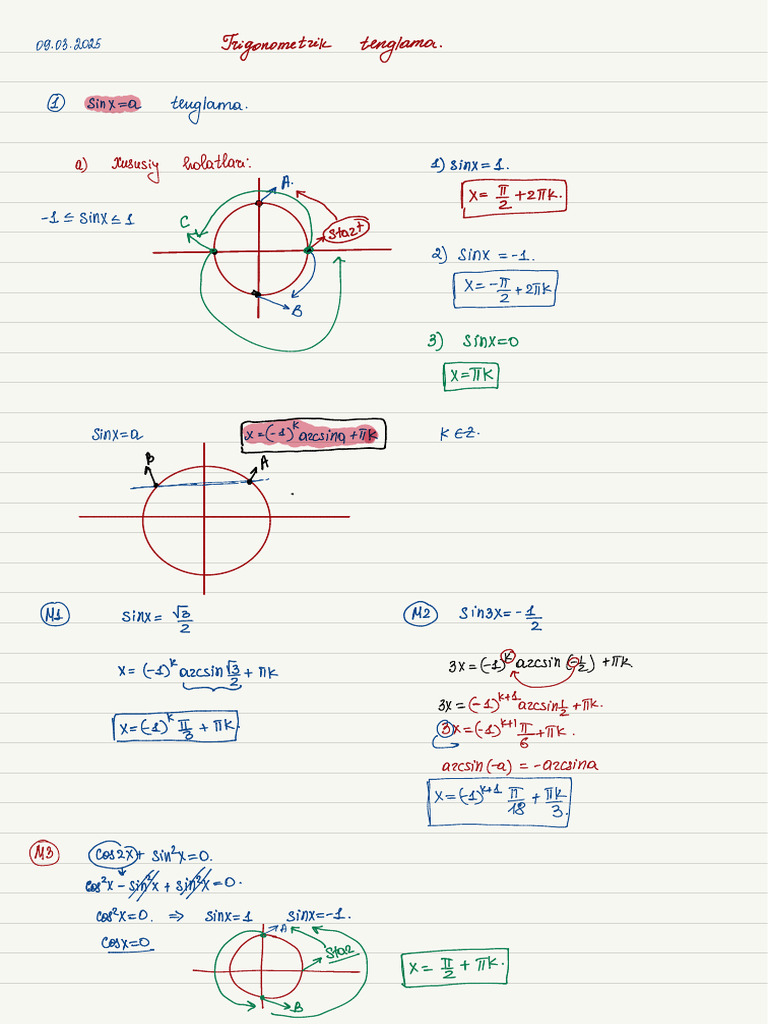 09.03.2025
Trigonometrik tenglama.
① sinx=a tenglama.
a) Xususiy holatlari:
-1 ≤ sinx ≤ 1
A.
C
Start
B
1) sinx=1.
x= π/2 +2πk.
2) sinx = -1.
x= -π/2 +2πk
3) sinx=0
x=πk
sinx=a
x=(-1)^k arcsina+πk
k∈Z.
B
A
M1 sinx= √3/2
x= (-1)^k arcsin √3/2 + πk
x=(-1)^k π/3 + πk.
M2 sin3x=-1/2
3x=(-1)^k arcsin(-1/2) +πk
3x=(-1)^k+1 arcsin 1/2 +πk.
3x=(-1)^k+1 π/6 +πk.
arcsin(-a) = -arcsina
x=(-1)^k+1 π/18 + πk/3.
M3 cos2x+ sin²x=0.
cos²x - sin²x + sin²x=0.
cos²x=0. ⇒ sinx=1 sinx=-1.
cosx=0
A
Star
B
x= π/2 + πk.